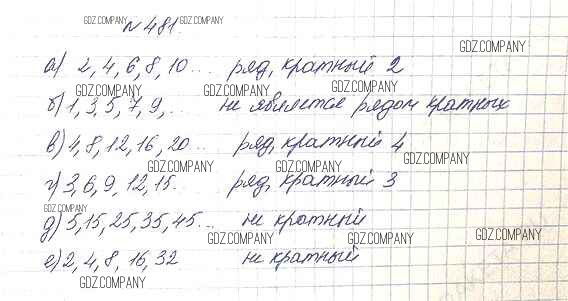 GDZ.COMPANY № 481. GDZ.COMPANY
GDZ.COMPANY
а) 2, 4, 6, 8, 10... ряд, кратный 2
GDZ.COMPANY GDZ.COMPANY GDZ.COMPANY
б) 1, 3, 5, 7, 9, ... не является рядом кратных
в) 4, 8, 12, 16, 20... ряд, кратный 4
GDZ.COMPANY GDZ.COMPANY GDZ.COMPANY
г) 3, 6, 9, 12, 15... ряд, кратный 3
GDZ.COMPANY
д) 5, 15, 25, 35, 45... не кратный
GDZ.COMPANY GDZ.COMPANY GDZ.COMPANY
е) 2, 4, 8, 16, 32 не кратный
GDZ.COMPANY